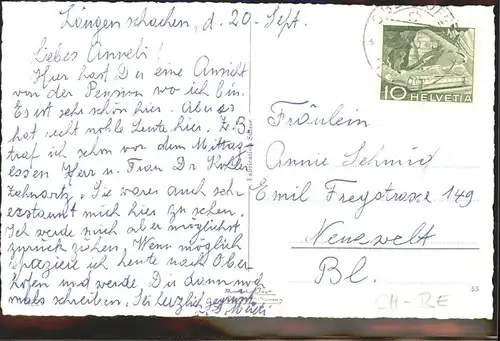 Längenschachen, d. 20. Sept.
Liebes Annebi!
Hier hast Du eine Ansicht
von der Pension wo ich bin.
Es ist sehr schön hier. Aber es
hat recht noble Leute hier. Z.B.
traf ich schon vor dem Mittag-
essen Herr u. Frau Dr Kohler
Zahnarzt. Sie waren auch sehr
erstaunt mich hier zu sehen.
Ich werde mich aber möglichst
zurück ziehen. Wenn möglich
spaziere ich heute nach Ober-
hofen und werde Dir dann noch-
mals schreiben. Sei herzlich gegrüsst
HELVETIA
10
Fräulein
Annie Schmid
Emil Freystrasse 149
Neuewelt
Bl.
CH-RE
55